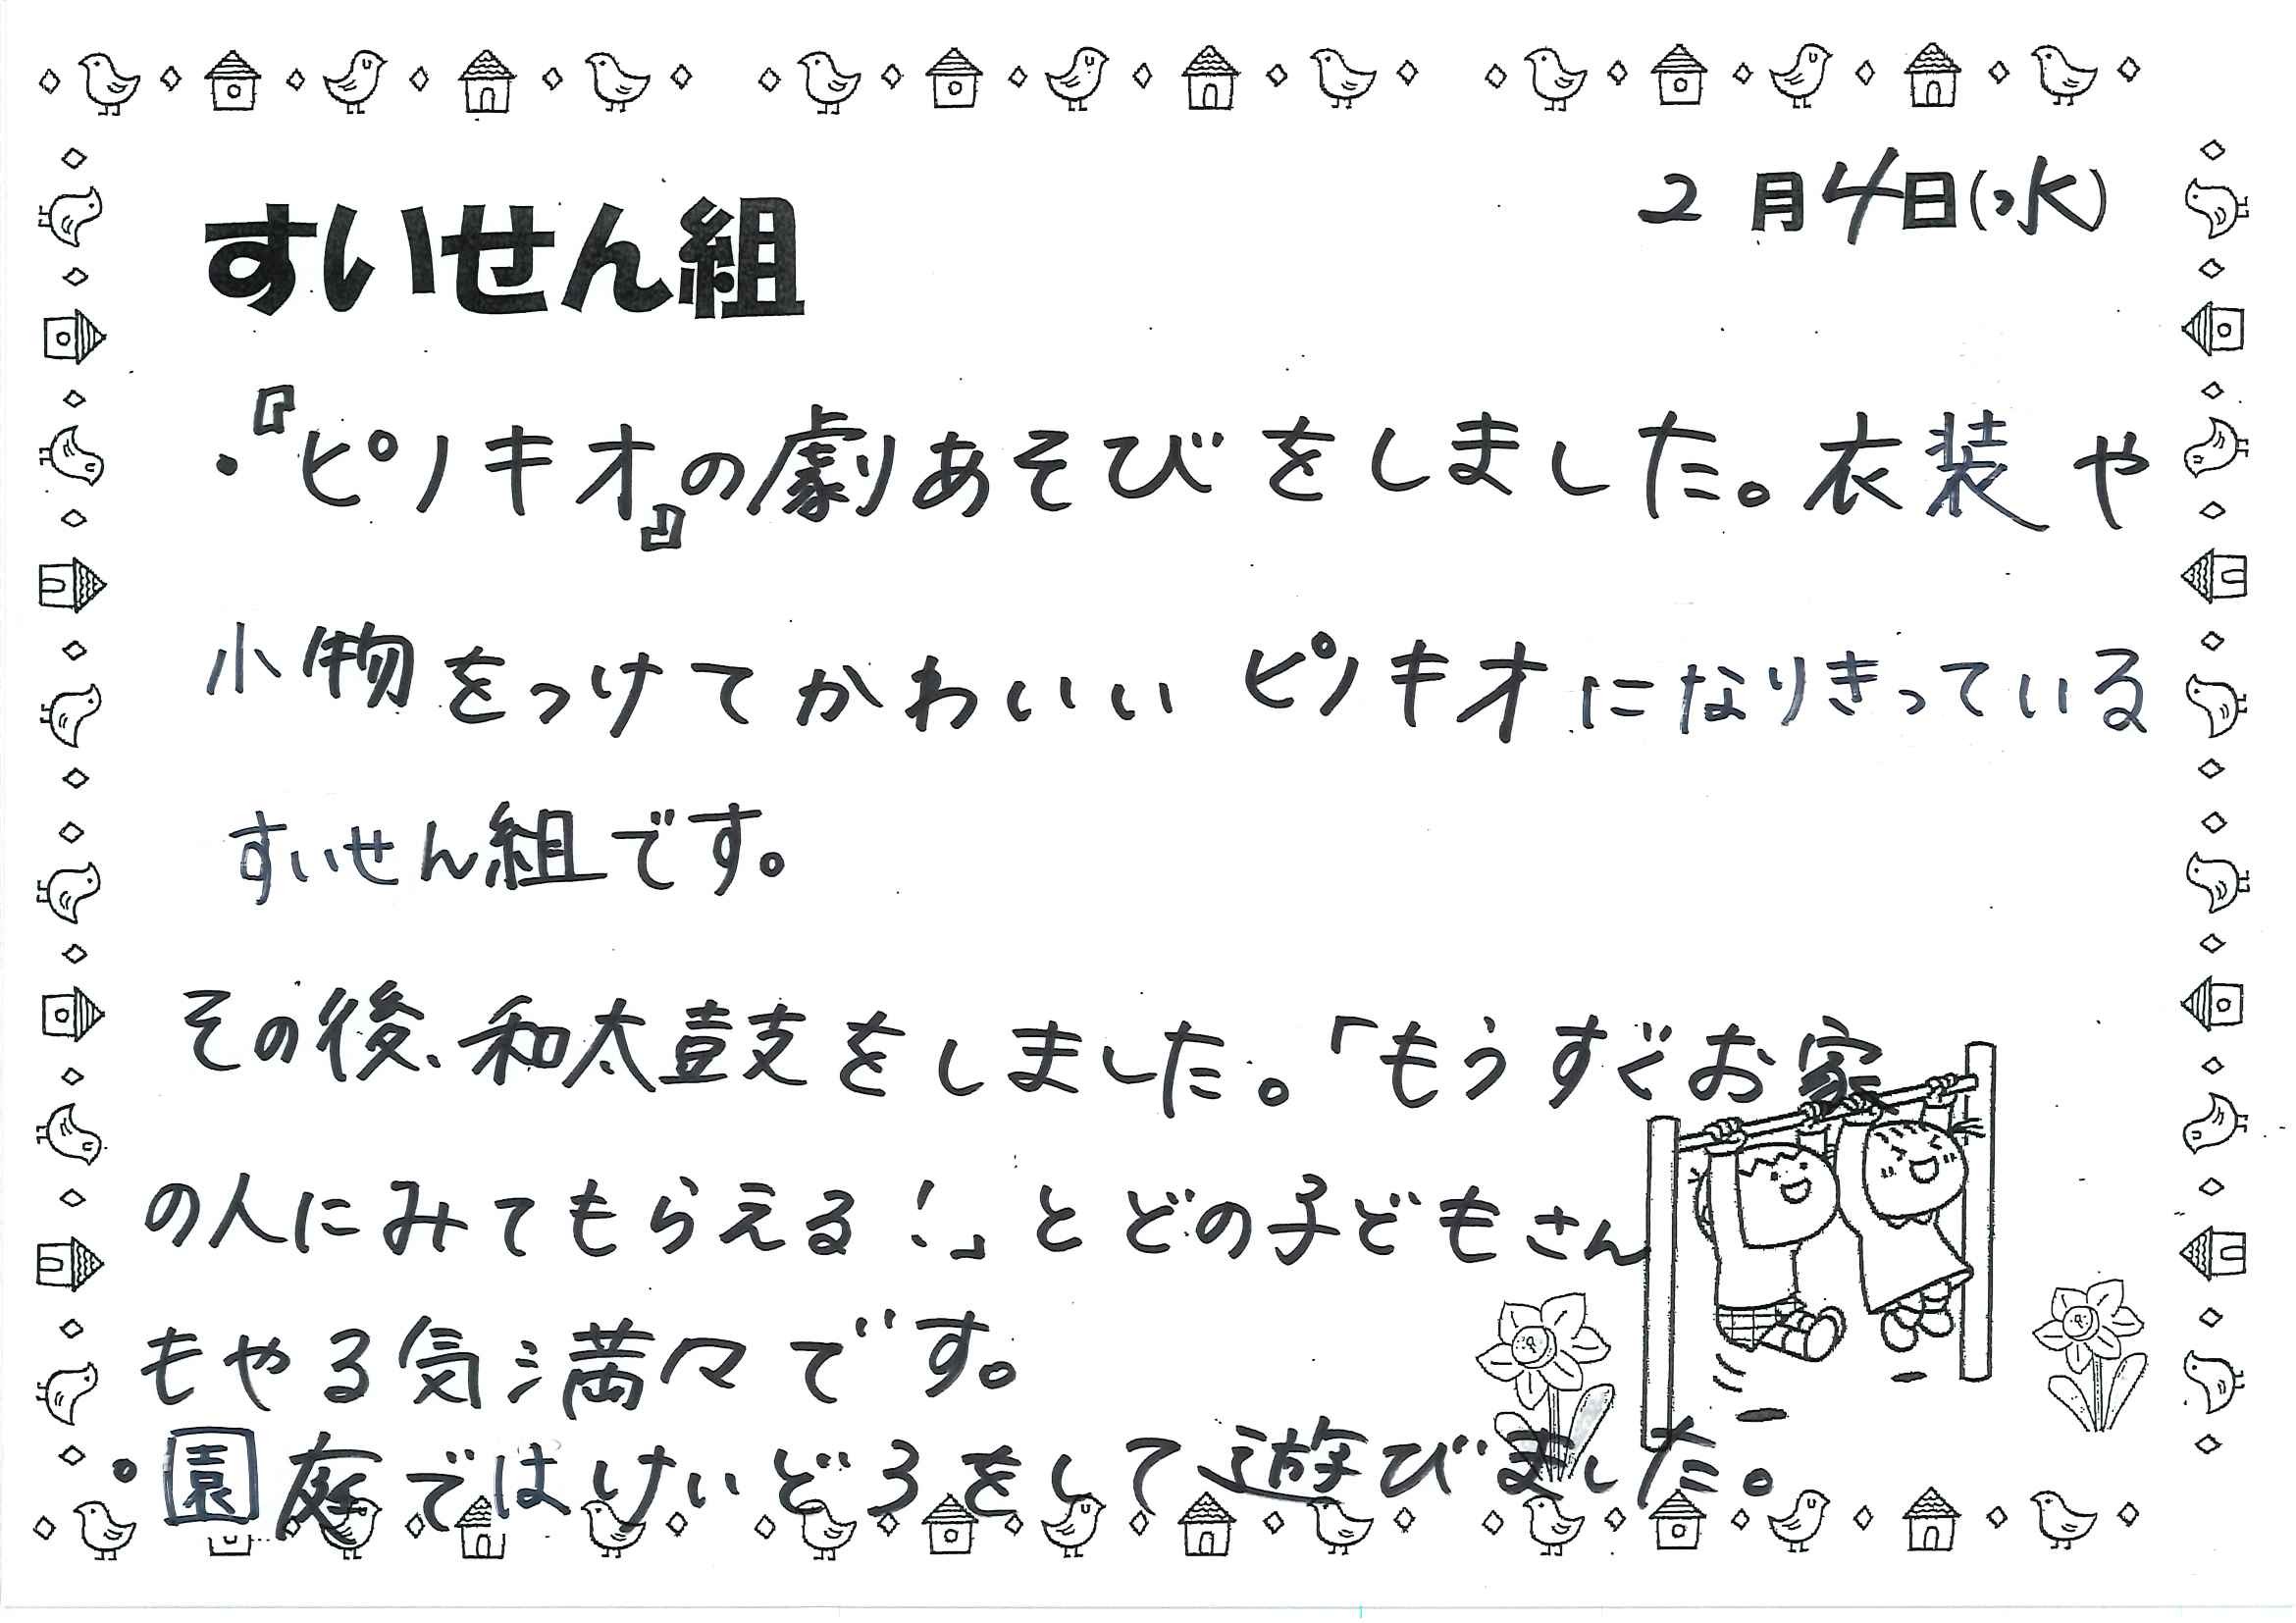 2月4日(水)
すいせん組
・『ピノキオ』の劇あそびをしました。衣装や
小物をつけてかわいいピノキオになりきっている
すいせん組です。
その後、和太鼓をしました。「もうすぐお家
の人にみてもらえる!」とどの子どもさん
もやる気満々です。
・園庭ではけいどろをして遊びました。